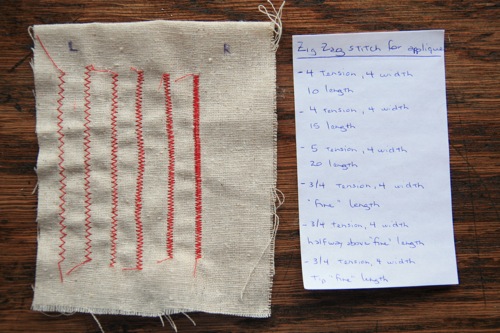 L R
Zig Zag stitch for applique
- 4 Tension, 4 width
10 length
- 4 Tension, 4 width
15 length
- 5 Tension, 4 width
20 length
- 3/4 Tension, 4 width
"fine" length
- 3/4 Tension, 4 width
halfway above "fine" length
- 3/4 Tension, 4 width
Tip "fine" length